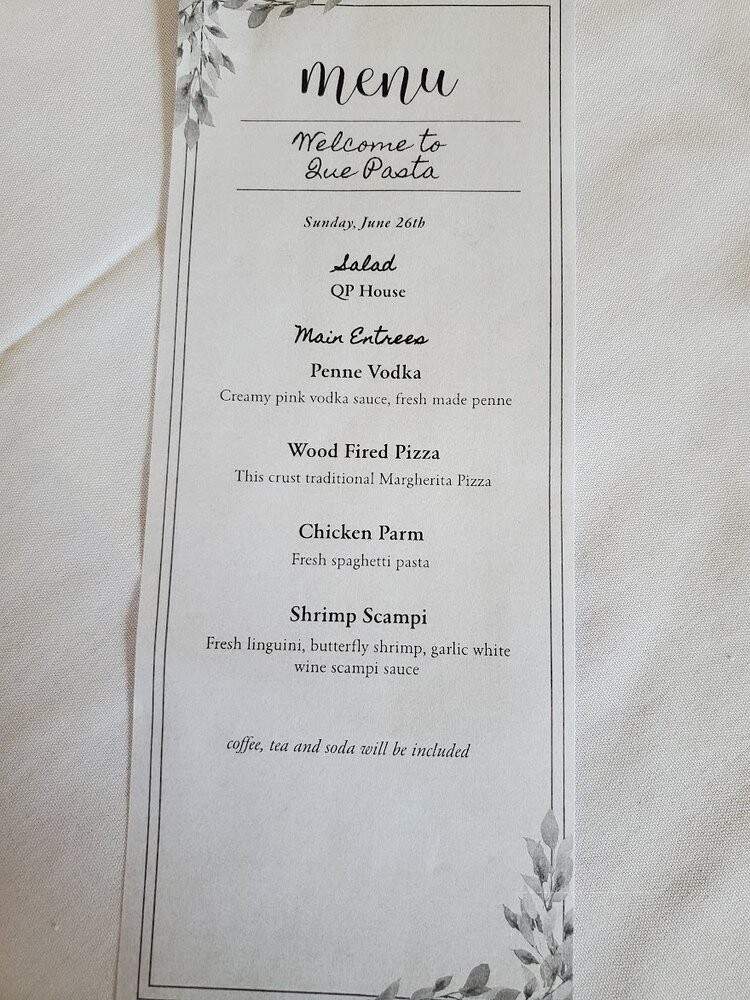 menu
Welcome to
Que Pasta
Sunday, June 26th
Salad
QP House
Main Entrees
Penne Vodka
Creamy pink vodka sauce, fresh made penne
Wood Fired Pizza
This crust traditional Margherita Pizza
Chicken Parm
Fresh spaghetti pasta
Shrimp Scampi
Fresh linguini, butterfly shrimp, garlic white
wine scampi sauce
coffee, tea and soda will be included